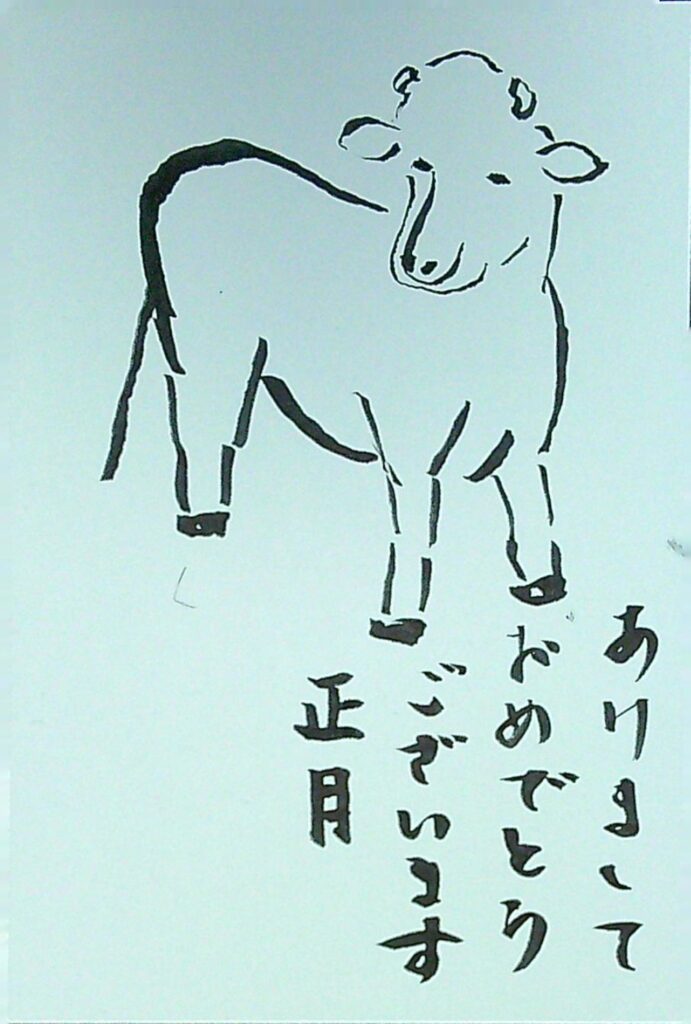 あけまして
おめでとう
ございます
正月